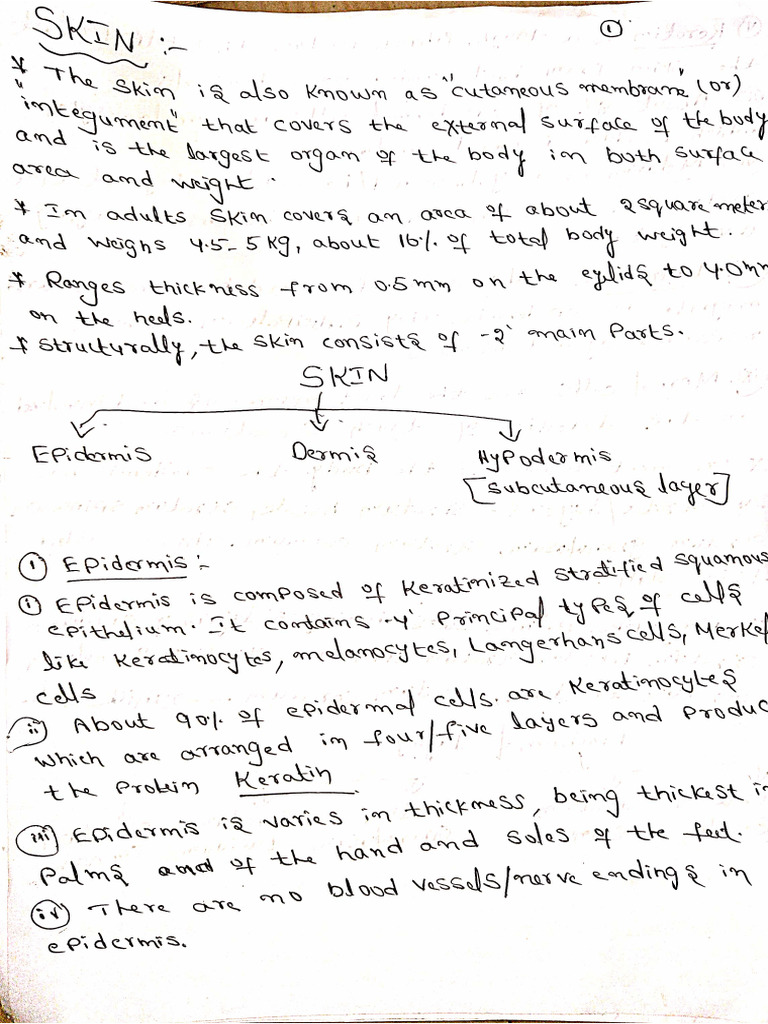 SKIN :-
①
* The skin is also known as "cutaneous membrane" (or)
"integument" that covers the external surface of the body
and is the largest organ of the body in both surface
area and weight.
* In adults skin covers an area of about 2 square meter
and weighs 4.5-5 kg, about 16% of total body weight.
* Ranges thickness from 0.5 mm on the eyelids to 4.0 mm
on the heels.
* structurally, the skin consists of -2' main parts.
SKIN
Epidermis Dermis Hypodermis
[subcutaneous layer]
① Epidermis :-
ⓘ Epidermis is composed of keratinized stratified squamous
epithelium. It contains -4' principal types of cells
like keratinocytes, melanocytes, Langerhans cells, Merkel
cells
ii) About 90% of epidermal cells are keratinocytes
which are arranged in four/five layers and produc
the protein Keratin
iii) Epidermis is varies in thickness, being thickest in
palms and of the hand and soles of the feet.
iv) There are no blood vessels/nerve endings in
epidermis.